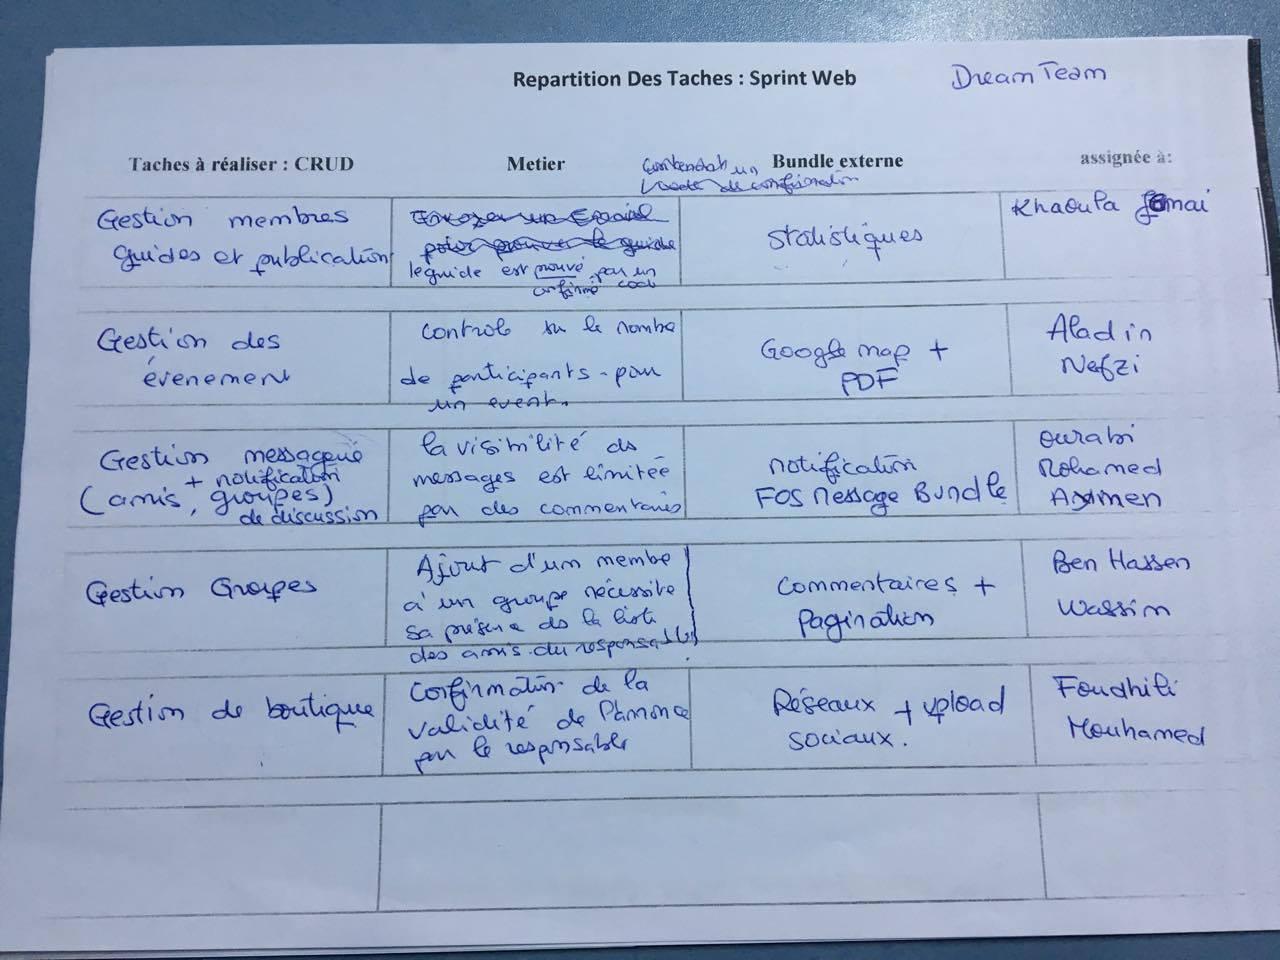 Repartition Des Taches : Sprint Web
Dream Team
Taches à réaliser : CRUD
Metier
Bundle externe
assignée à:
contenant un
code de confirmation
Gestion membres
guides et publication
Envoyer un Email
pour prouver le guide
le guide est prouvé par un
confirmé code
Statistiques
Khaoula
Gestion des
évenement
Controle su le nombre
de participants pour
un event.
Google map +
PDF
Aladin
Nefzi
Gestion messagerie
+ notification
(amis, groupes)
de discussion
la visibilité ds
messages est limitée
par des commentaires
notification
FOS Message Bundle
Ourabi
Mohamed
Aymen
Gestion Groupes
Ajout d'un membre
à un groupe nécessite
sa présence ds la liste
des amis du responsable
Commentaires +
Pagination
Ben Hassen
Wassim
Gestion de boutique
Confirmation de la
validité de l'annonce
par le responsable
Réseaux + upload
sociaux.
Foudhili
Mouhamed